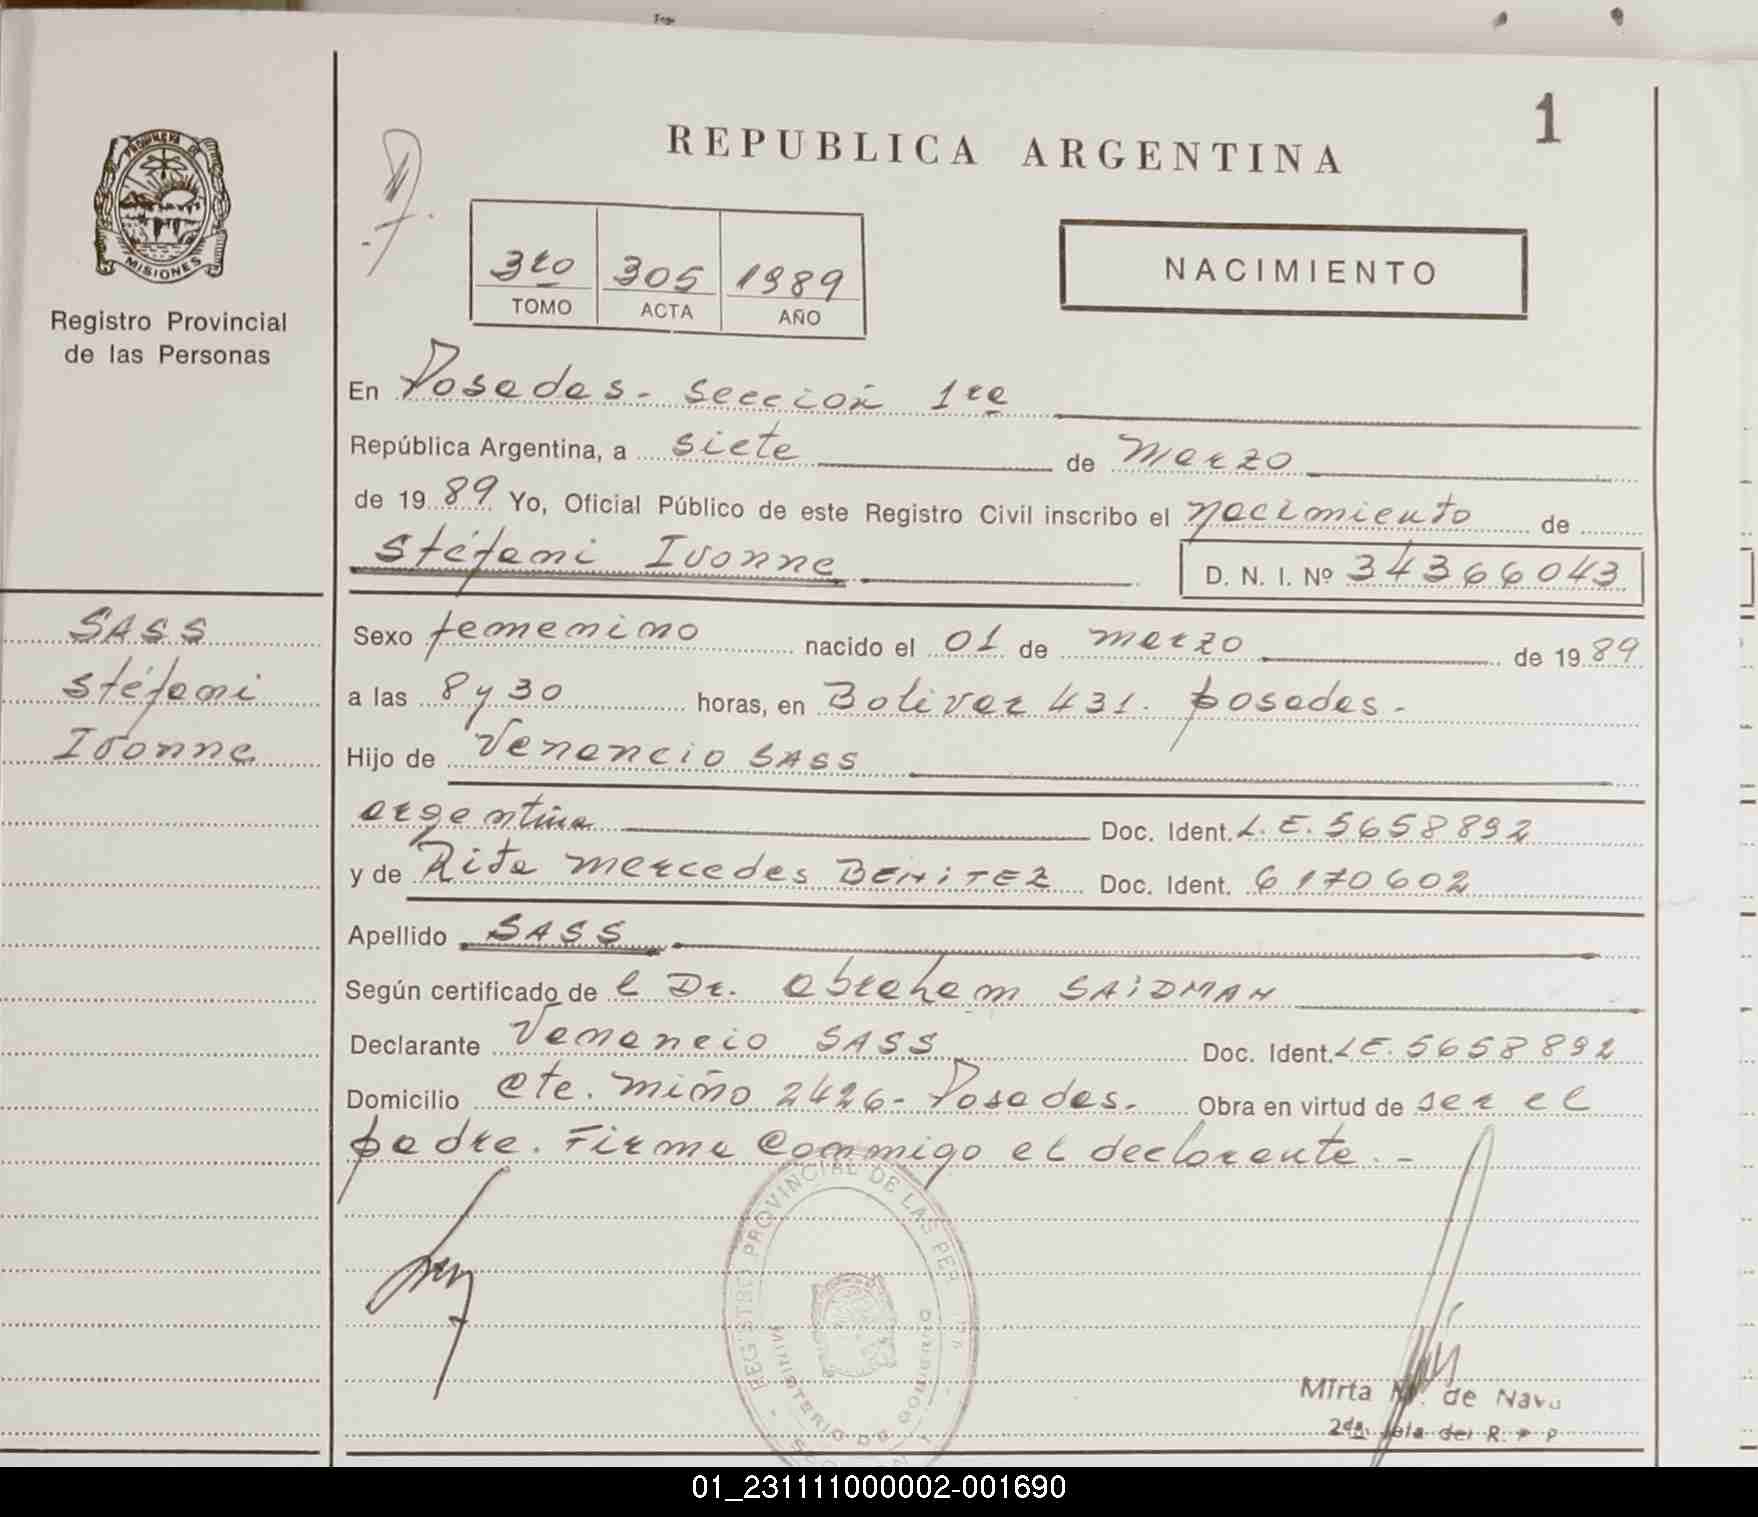 1
REPUBLICA ARGENTINA
PROVINCIA DE
MISIONES
Registro Provincial
de las Personas
3to 305 1989
TOMO ACTA AÑO
NACIMIENTO
En Posadas - sección 1ra
República Argentina, a siete de marzo
de 1989 Yo, Oficial Público de este Registro Civil inscribo el nacimiento de
Stéfani Ivonne D. N. I. Nº 34366043
SASS
Stéfani
Ivonne
Sexo femenino nacido el 01 de marzo de 1989
a las 8 y 30 horas, en Bolivar 431. posadas.-
Hijo de Venancio SASS
argentina Doc. Ident. L. E. 5658892
y de Rita mercedes BENITEZ Doc. Ident. 6170602
Apellido SASS
Según certificado de l Dr. abraham SAIDMAN
Declarante Venancio SASS Doc. Ident. LE. 5658892
Domicilio Cte. miño 2426 - Posadas. Obra en virtud de ser el
padre. Firma Conmigo el declarante.-
REGISTRO PROVINCIAL DE LAS PER
MINISTERIO DE GOBIERNO
Mirta de Nava
2da. Jefa del R. P. P
01_231111000002-001690